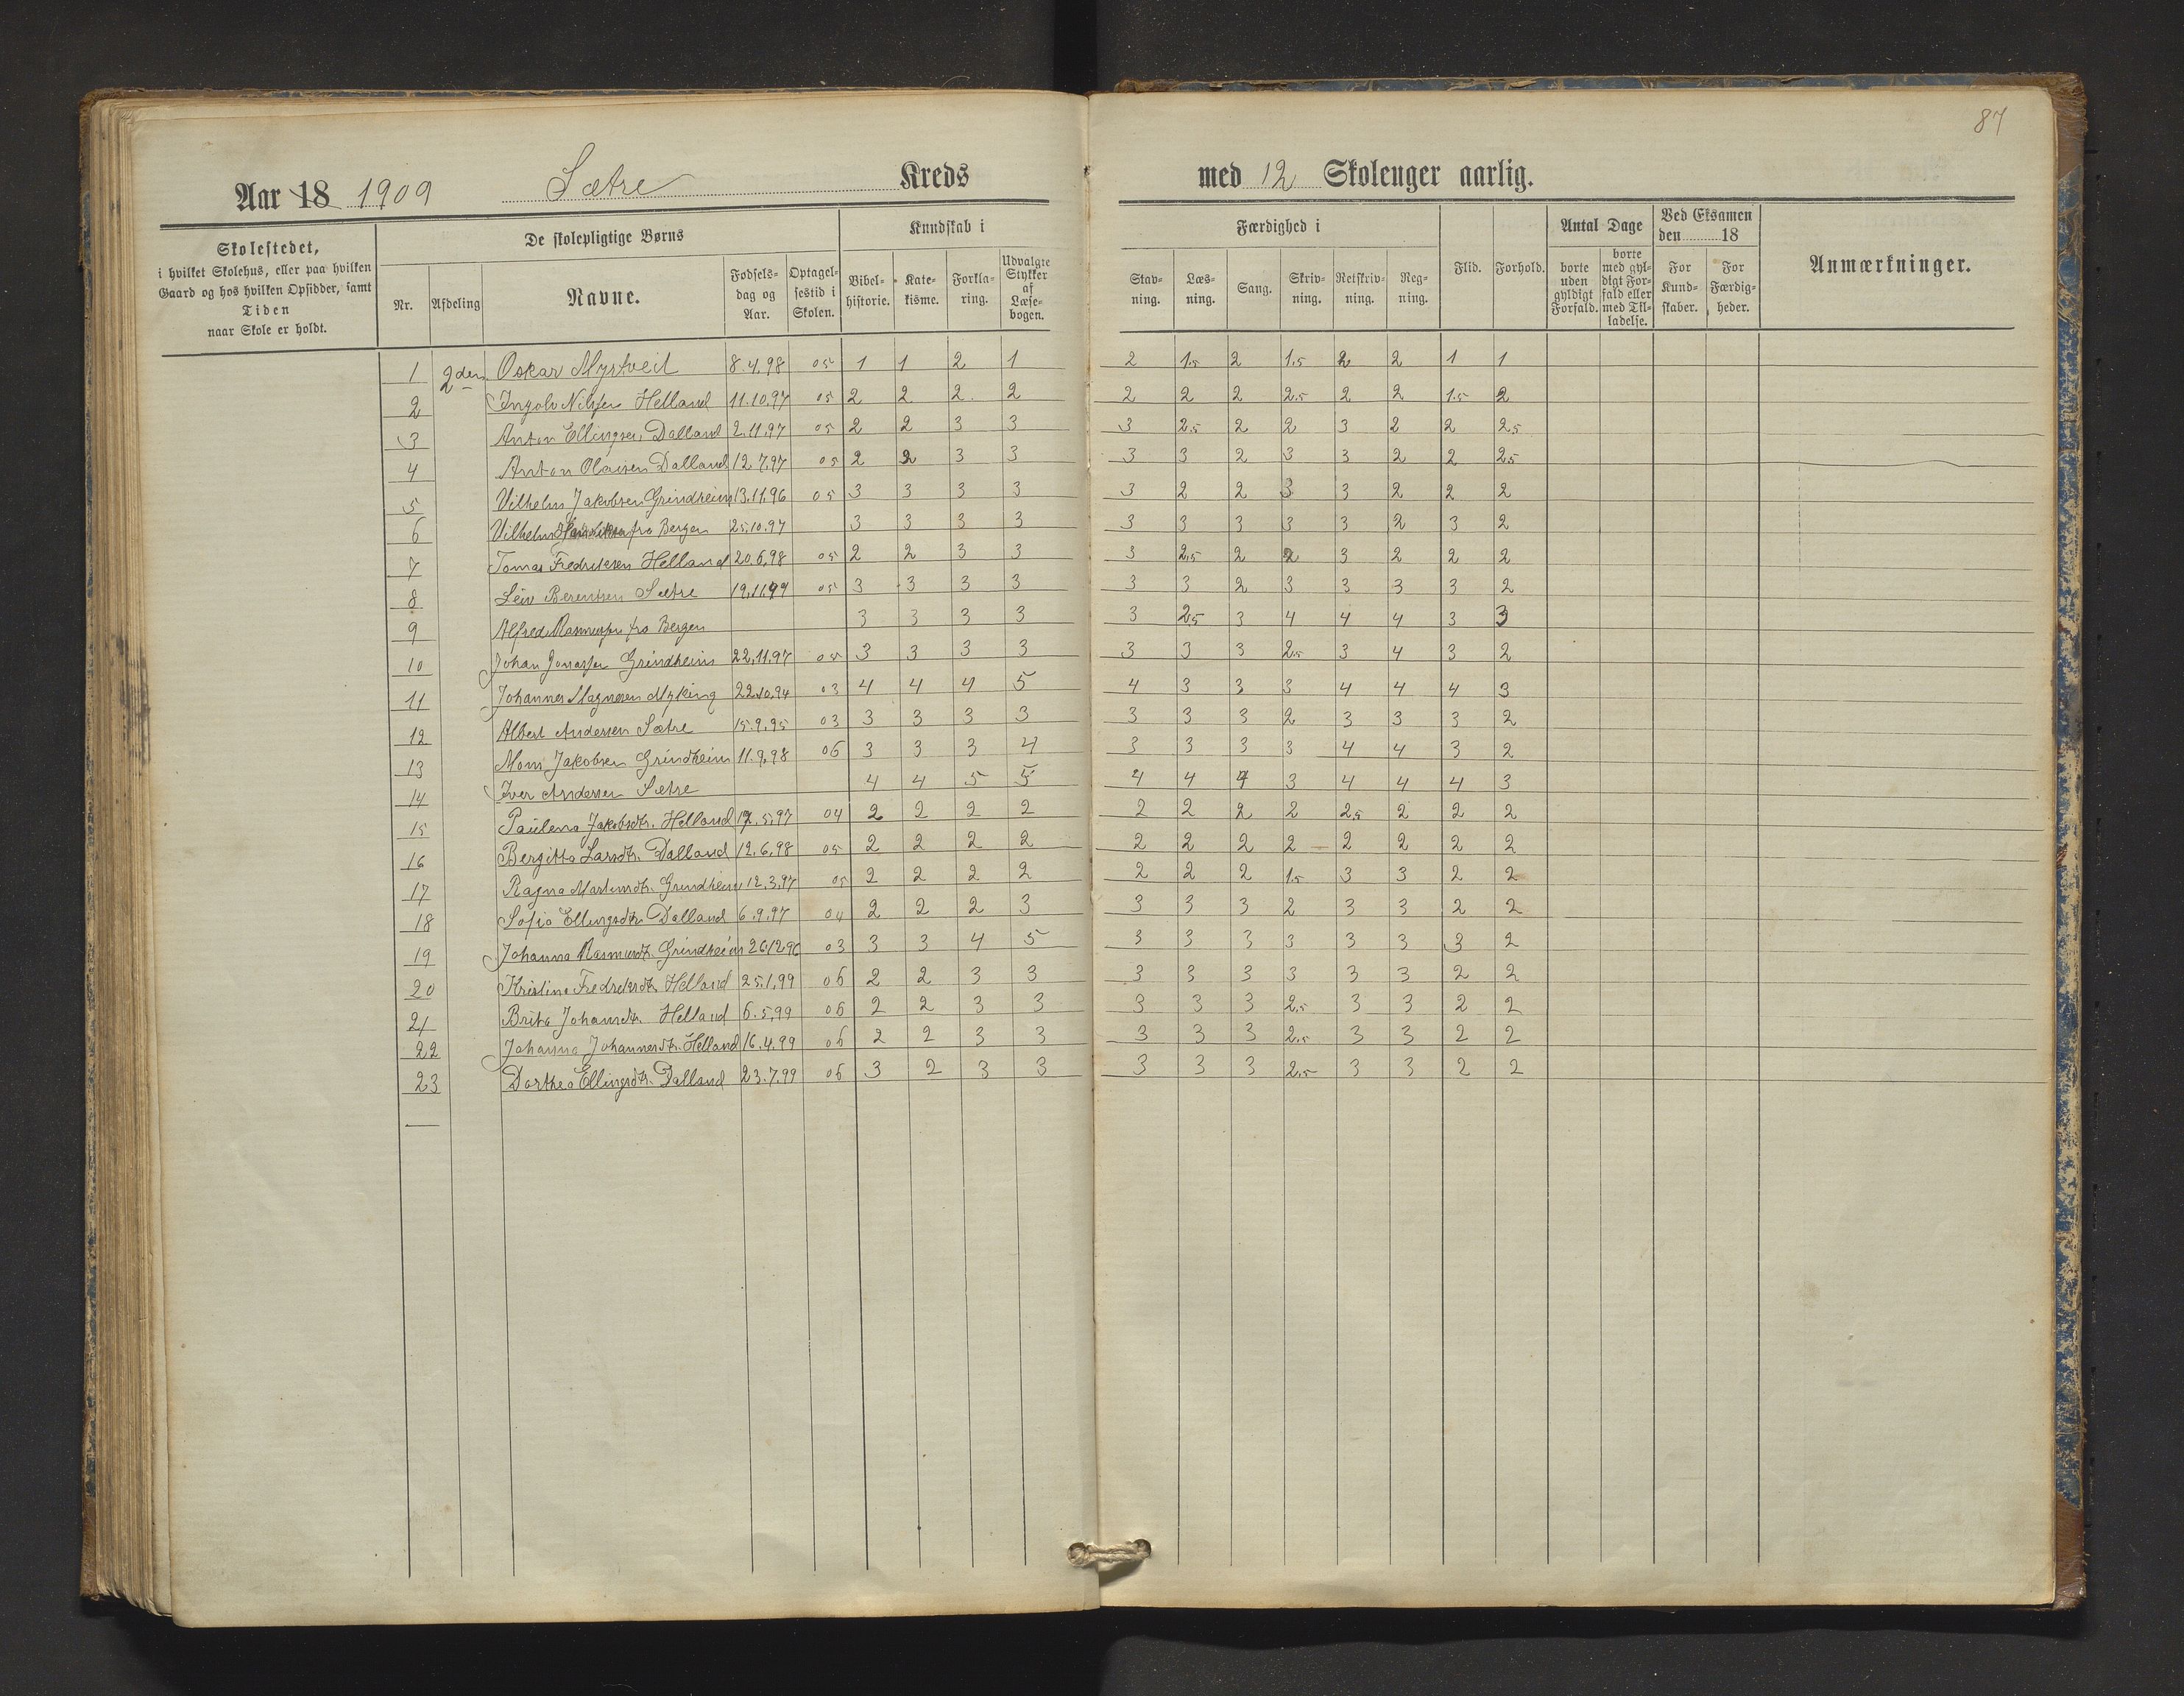 87
Aar 18 1909 Sætre Kreds med 12 Skoleuger aarlig.
Skolestedet,
i hvilket Skolehus, eller paa hvilken
Gaard og hos hvilken Opsidder, samt
Tiden
naar Skole er holdt.
De skolepligtige Børns
Nr. Afdeling Navne. Fødsels-dag og Aar. Optagel-sestid i Skolen.
Kundskab i
Bibel-historie. Kate-kisme. Forkla-ring. Udvalgte Stykker af Læse-bogen.
Færdighed i
Stav-ning. Læs-ning. Sang. Skriv-ning. Retskriv-ning. Reg-ning.
Flid. Forhold.
Antal Dage
borte uden gyldigt Forfald. borte med gyl-digt For-fald eller med Til-ladelse.
Ved Eksamen
den 18
For Kund-skaber. For Færdig-heder.
Anmærkninger.
1 2den Oskar Myrtveit 8.4.98 05 1 1 2 1 2 1.5 2 1.5 2 2 1 1
2 Ingolv Nilsen Helland 11.10.97 05 2 2 2 2 2 2 2 2.5 2 2 1.5 2
3 Anton Ellingsen Dalland 2.11.97 05 2 2 3 3 3 2.5 2 2 3 2 2 2.5
4 Anton Olaisen Dalland 12.7.97 05 2 2 3 3 3 3 2 3 3 2 2 2.5
5 Vilhelm Jakobsen Grindheim 13.11.96 05 3 3 3 3 3 2 2 3 3 2 2 2
6 Vilhelm fra Bergen 25.10.97 3 3 3 3 3 3 3 3 3 2 3 2
7 Tomas Fredriksen Helland 20.6.98 05 2 2 3 3 3 2.5 2 2 3 2 2 2
8 Leiv Berentsen Sætre 05 3 3 3 3 3 3 2 3 3 3 3 2
9 Alfred Rasmussen fra Bergen 3 3 3 3 3 2.5 3 4 4 4 3 3
10 Johan Jonassen Grindheim 22.11.97 05 3 3 3 3 3 3 3 2.5 3 4 3 2
11 Johannes Magnesen Myking 22.10.94 03 4 4 4 5 4 3 3 3 4 4 4 3
12 Albert Andersen Sætre 15.9.95 03 3 3 3 3 3 3 3 2 3 3 3 2
13 Mons Jakobsen Grindheim 11.9.98 06 3 3 3 4 3 3 3 3 4 4 3 2
14 Iver Andersen Sætre 4 4 5 5 4 4 4 3 4 4 4 3
15 Paulena Jakobsdtr. Helland 5.97 04 2 2 2 2 2 2 2 2 2.5 2 2 2
16 Bergitta Larsdtr. Dalland 12.6.98 05 2 2 2 2 2 2 2 2 2 2 2 2
17 Ragna Martinsdtr. Grindheim 12.3.97 05 2 2 2 2 2 2 2 1.5 3 3 2 2
18 Sofia Ellingsdtr. Dalland 6.9.97 04 2 2 2 3 3 3 3 2 3 3 2 2
19 Johanna Rasmusdtr. Grindheim 26.12.96 03 3 3 4 5 3 3 3 3 3 3 3 2
20 Kristina Fredriksdtr. Helland 25.1.99 06 2 2 3 3 3 3 3 3 3 3 2 2
21 Brita Johansdtr. Helland 6.5.99 06 2 2 3 3 3 3 3 2.5 3 3 2 2
22 Johanna Johannesdtr. Helland 16.4.99 06 2 2 3 3 3 3 3 2.5 3 3 2 2
23 Dorthea Ellingsdtr. Dalland 23.7.99 06 3 2 3 3 3 3 3 2.5 3 3 2 2